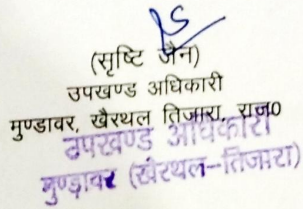 (सृष्टि जैन)
उपखण्ड अधिकारी
मुण्डावर, खैरथल तिजारा, राज0
उपखण्ड अधिकारी
मुण्डावर (खैरथल-तिजारा)